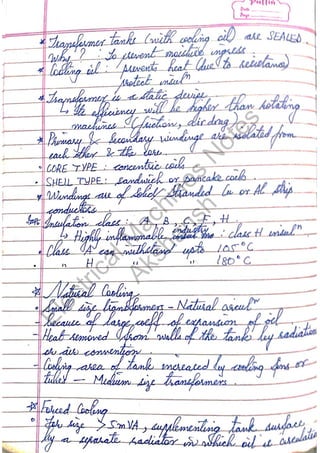 * Transformer tanks (with cooling oil) are SEALED.
Why? : To prevent moisture ingress.
* Cooling oil : prevents heat (due to resistance)
protect insulⁿ
* Transformer is a static device
↳ Its efficiency will be higher than rotating
machines (friction, air drag)
* Primary & Secondary windings are isolated from
each other & the core.
- CORE TYPE : concentric coils
- SHELL TYPE : sandwich or pancake coils
* Windings are of Solid/Stranded Cu or Al strip
conductors
Insulation class : A, B, C, E, H
industry
↳ Highly inflammable : class H insulⁿ
• Class A can withstand upto 105°C
• " H " " " 180°C
* Natural Cooling
- Small size transformers - Natural circulⁿ
- because of large coeff of expansion of oil
- Heat removed from walls of the tank by radiation
or air convention.
- Cooling area of tank increased by cooling fins or
tubes - Medium size transformers.
* Forced Cooling
- For size > 5MVA, supplementing tank surface
by a separate radiator in which oil is circulated
Electrical Machines Notes